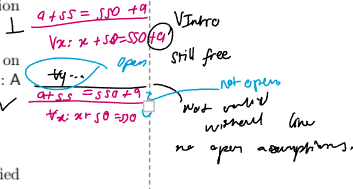 ion
⊥ a+ss = ss0+a ∀Intro
∀x: x+s0=ss0+a still free
on open
: A ∀y... not open
✓ a+ss = ss0+a
∀x: x+s0=ss0 not valid
without line
no open assumptions.
ied